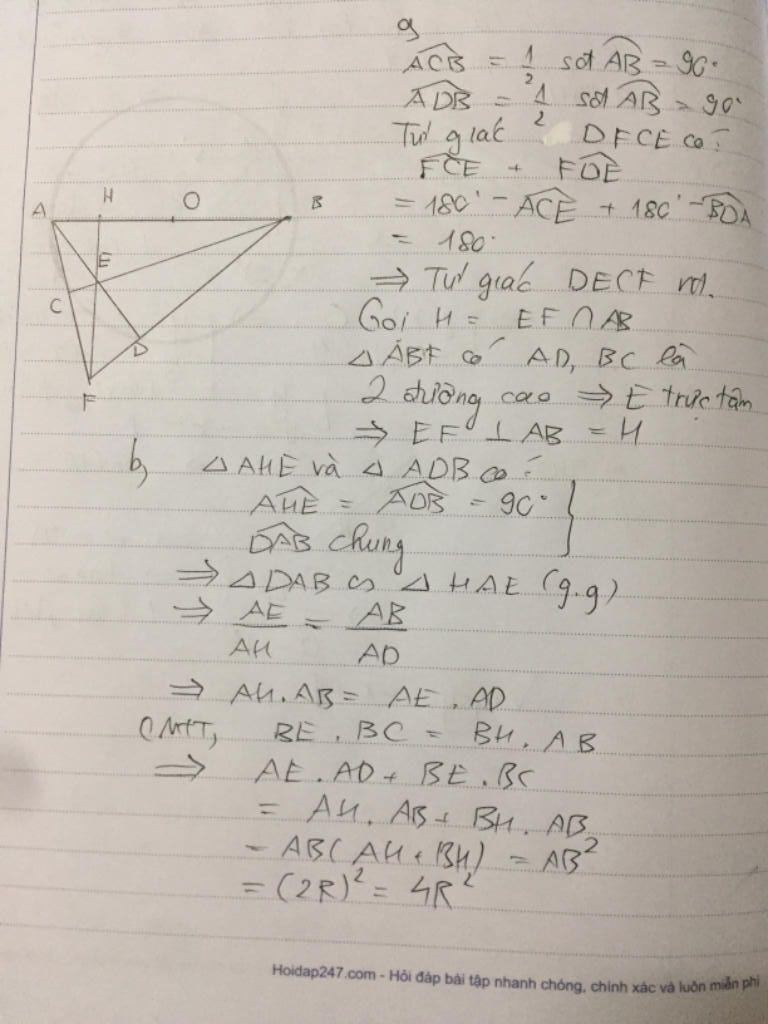 a)
ACB = 1/2 sđ AB = 90°
ADB = 1/2 sđ AB = 90°
Tứ giác DFCE có:
FCE + FDE
= 180° - ACE + 180° - BDA
= 180°
⇒ Tứ giác DECF nt.
Gọi H = EF ∩ AB
△ ABF có AD, BC là
2 đường cao ⇒ E trực tâm
⇒ EF ⊥ AB = H
H
O
A
B
E
C
D
F
b, △ AHE và △ ADB có:
AHE = ADB = 90° }
DAB chung
⇒ △ DAB ∽ △ HAE (g.g)
⇒ AE/AH = AB/AD
⇒ AH.AB = AE.AD
CMTT, BE.BC = BH.AB
⇒ AE.AD + BE.BC
= AH.AB + BH.AB
= AB(AH + BH) = AB²
= (2R)² = 4R²
Hoidap247.com - Hỏi đáp bài tập nhanh chóng, chính xác và luôn miễn phí